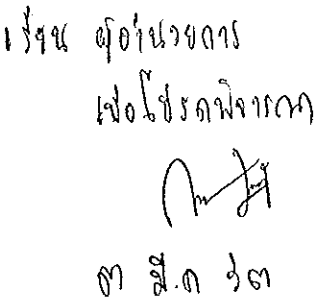 เรียน ผู้อำนวยการ
เพื่อโปรดพิจารณา
๓ มี.ค ๖๓